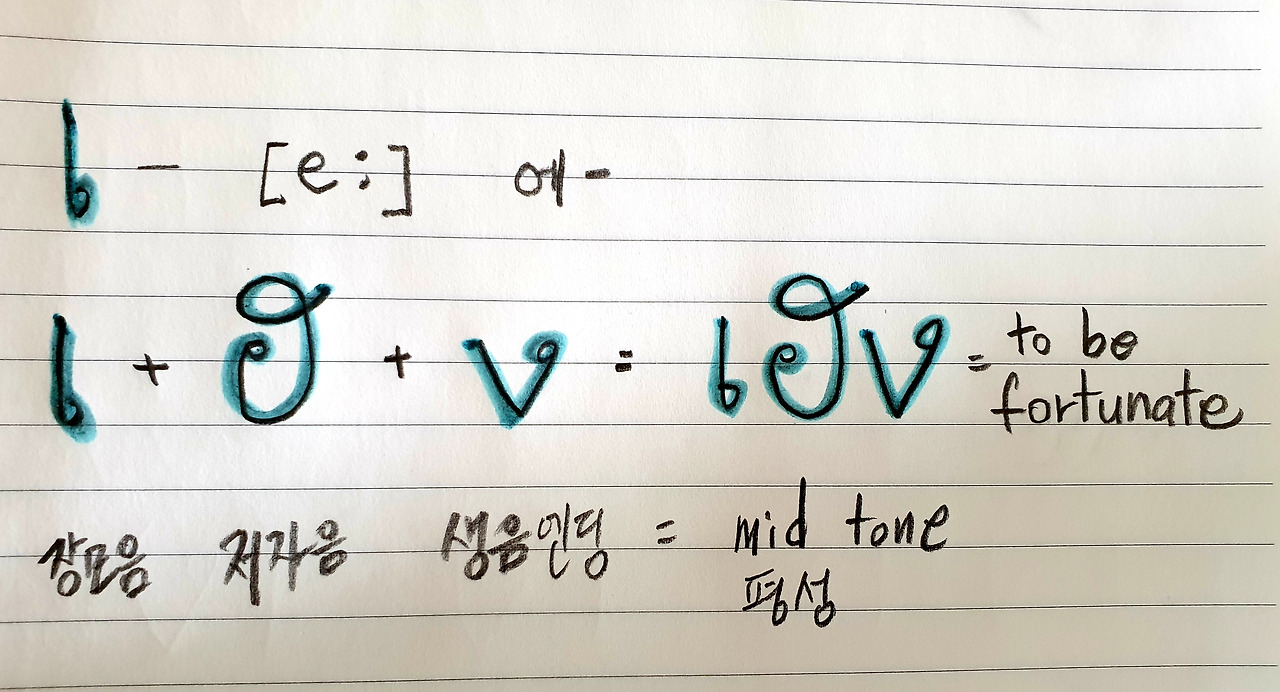 เ - [e:] 에-
เ + ฮ + ง = เฮง = to be
fortunate
장모음 저자음 생음엔딩 = mid tone
평성